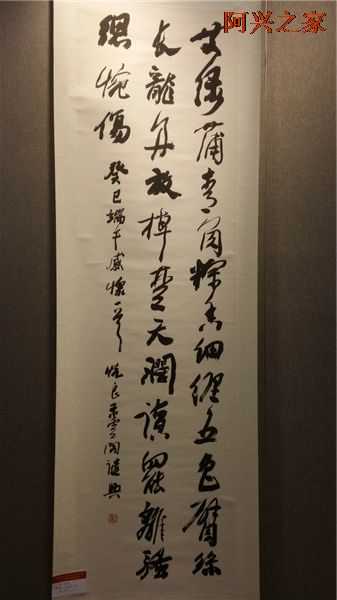 阿兴之家
艾绿蒲青角粽香细缠五色臂丝
长龙舟放棹楚天阔读罢离骚
总惋伤 癸巳端午感怀一首